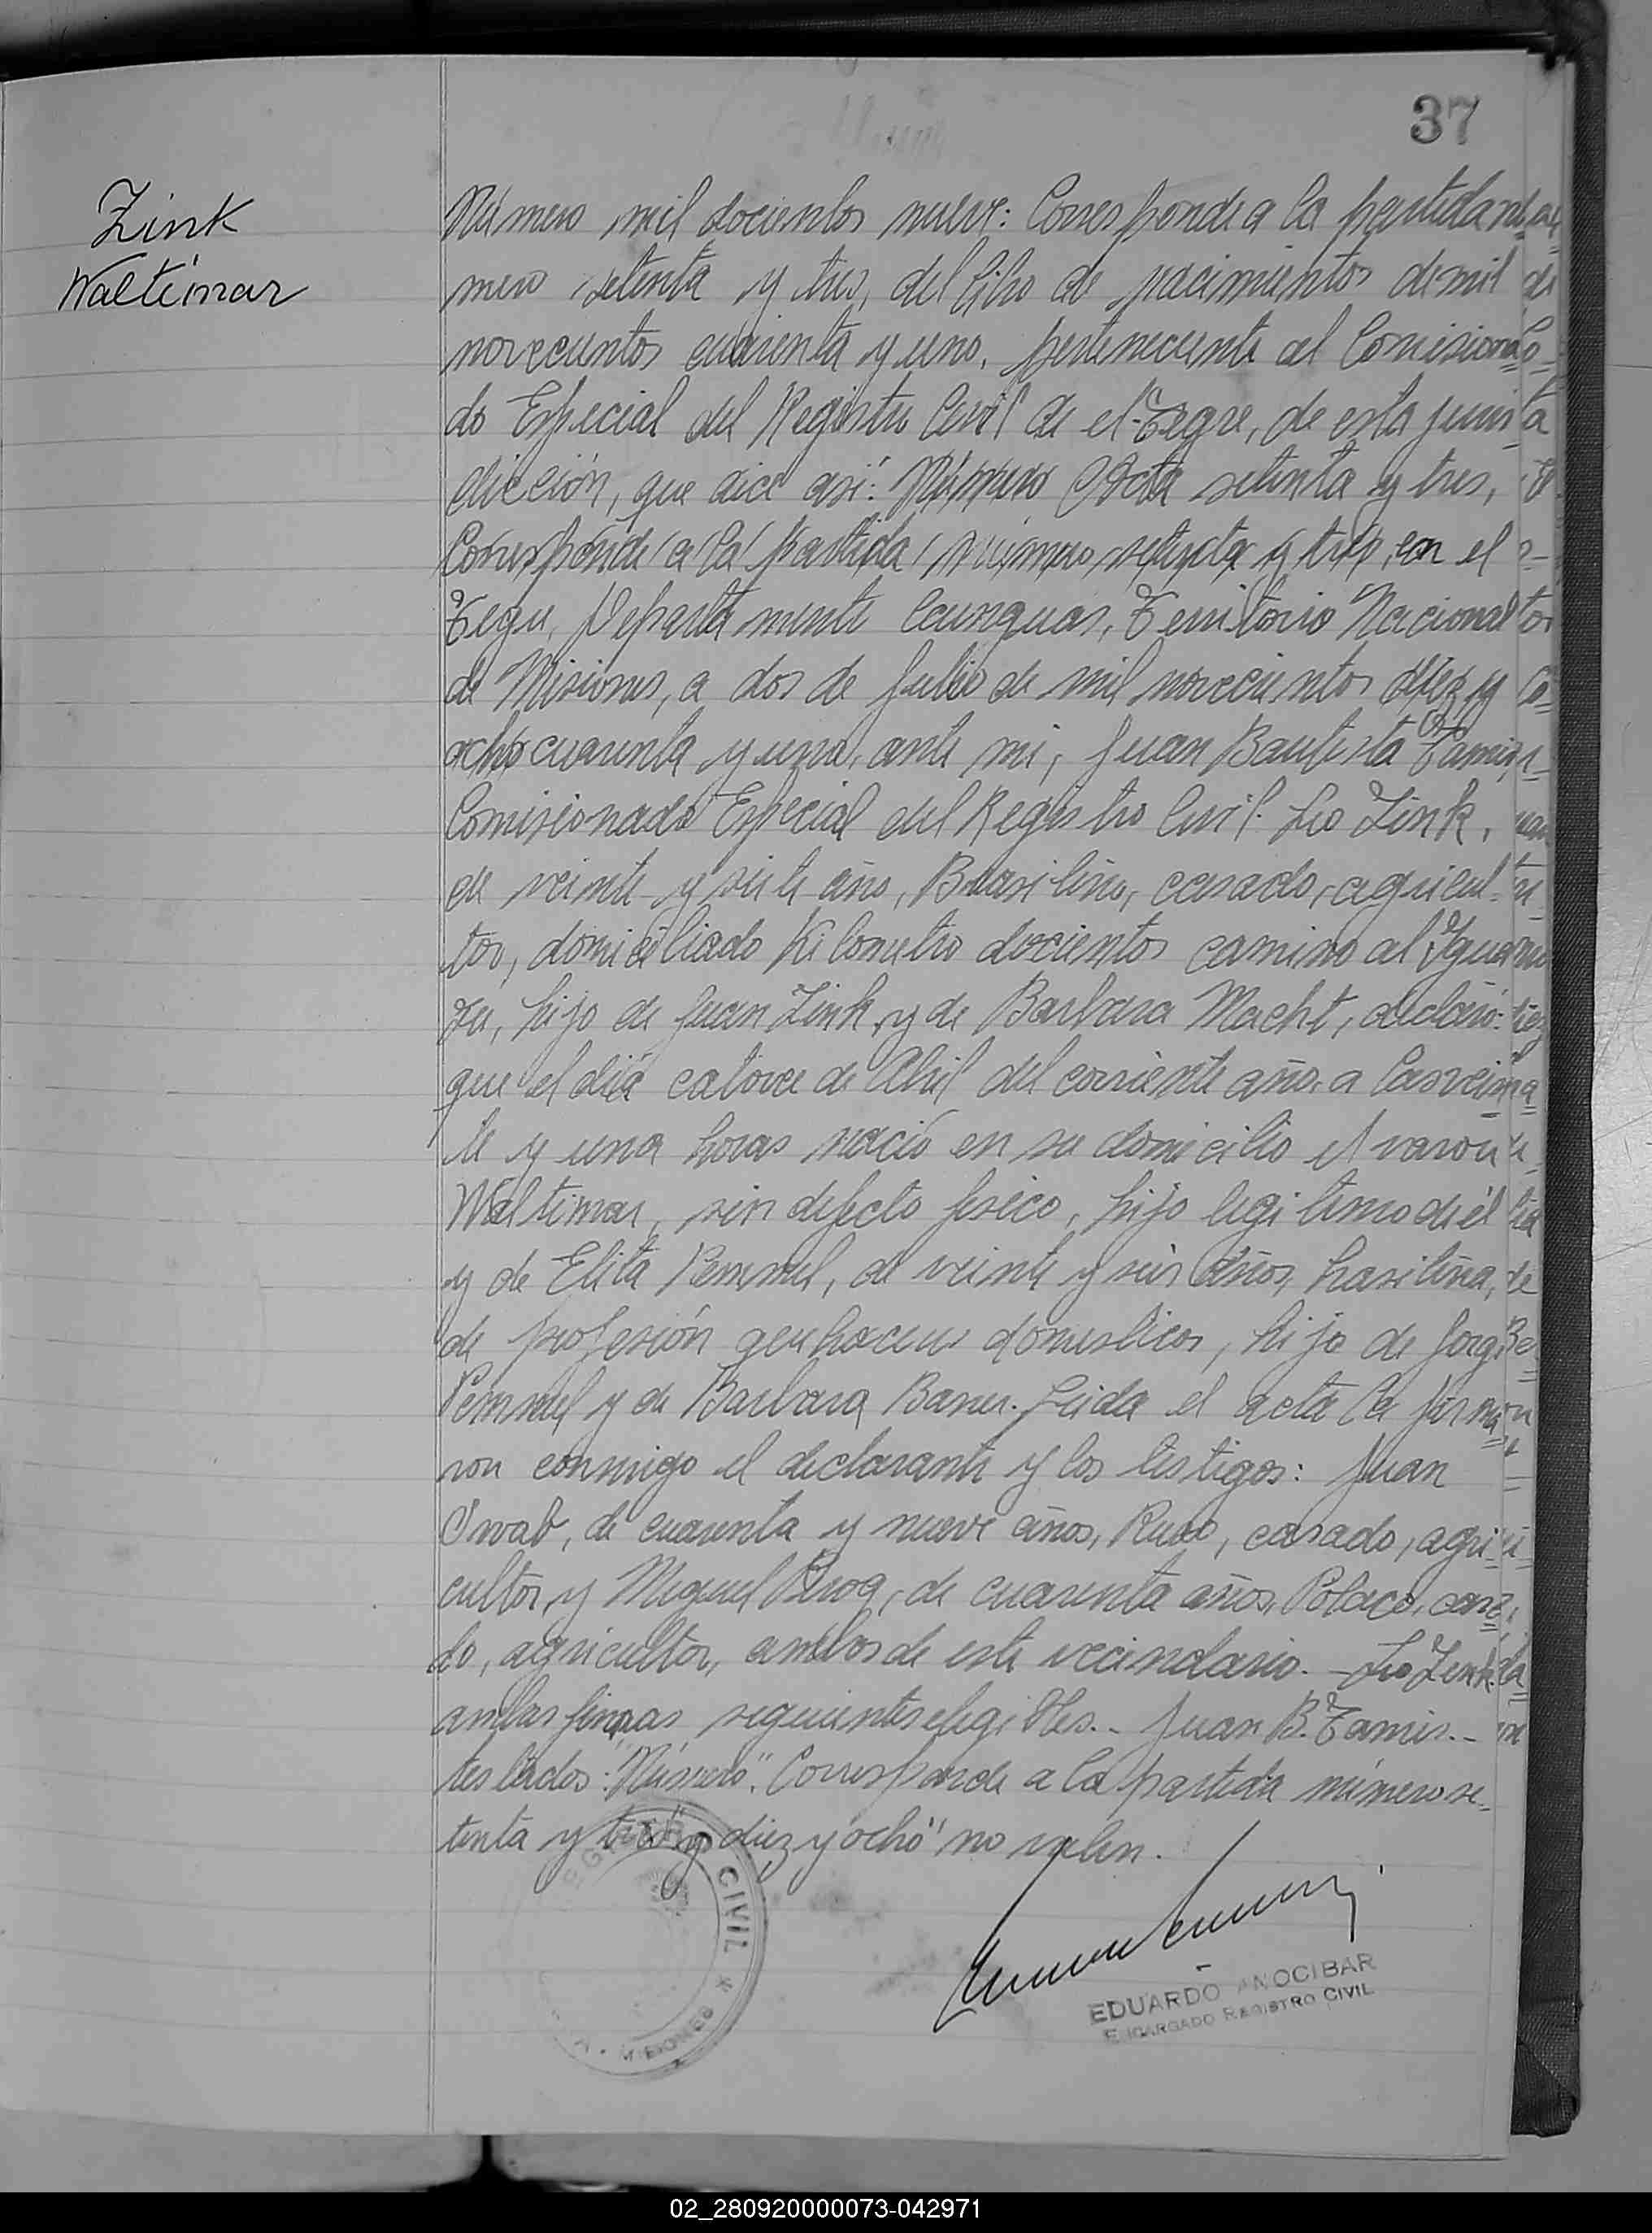 37
Zink
Waltimar
Número mil docientos nueve: Corresponde a la partida nú-
mero setenta y tres, del libro de nacimientos de mil
novecientos cuarenta y uno, perteneciente al Comisiona-
do Especial del Registro Civil de el Tegre, de esta juris-
dicción, que dice así: Número Acta setenta y tres,
Corresponde a la partida número setenta y tres, en el
Departamento Cainguas, Territorio Nacional
de Misiones, a dos de Julio de mil novecientos diez y
ocho cuarenta y uno, ante mi, Juan Bautista Tamis
Comisionado Especial del Registro Civil. Leo Zink,
de veinte y siete año, Brasileño, casado, agricul-
tor, domiciliado Kilometro docientos camino al Iguaz
zu, hijo de Juan Zink, y de Barbara Macht, declaró:
que el día catorce de Abril del corriente año, a las vein-
te y una horas nació en su domicilio el varon
Waltimar, sin defecto fisico, hijo legitimo de él
y de Elita Pemmel, de veinte y seis años, brasileña,
de profesión quehaceres domesticos, hija de Jorge
Pemmel y de Barbara Baner. Leida el acta la firma-
ron conmigo el declarante y los testigos: Juan
Swab, de cuarenta y nueve años, Ruso, casado, agri-
cultor, y Miguel de cuarenta años, Polaco, casa-
do, agricultor, ambos de este vecindario. - Leo Zink.
ambas firmas siguientes elegibles. - Juan B. Tamis. -
testados: "Número". Corresponde a la partida número se-
tenta y tres y diez y ocho" no valen.
REGISTRO CIVIL * MISIONES
EDUARDO ANOCIBAR
ENCARGADO REGISTRO CIVIL
02_280920000073-042971